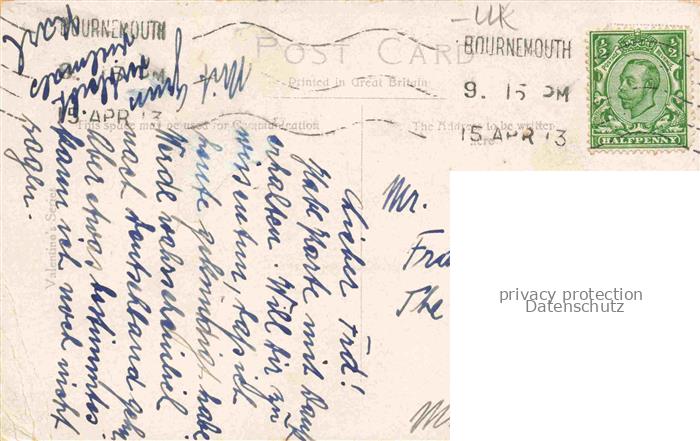 - UK
BOURNEMOUTH
POST CARD
BOURNEMOUTH
9. 15 PM
Printed in Great Britain
15 APR 13
15 APR 13
This space may be used for Communication
The Address to be written here
HALFPENNY
Valentine's Series
Lieber Frd!
Habe Karte mit Dank
erhalten. Will dir zu
wissen tun, daß ich
heute gekündigt habe
Werde wahrscheinlich
nach Deutschland gehn
Aber etwas bestimmtes
kann ich noch nicht
sagen.
Mit
Mr.
Fra
The
privacy protection
Datenschutz